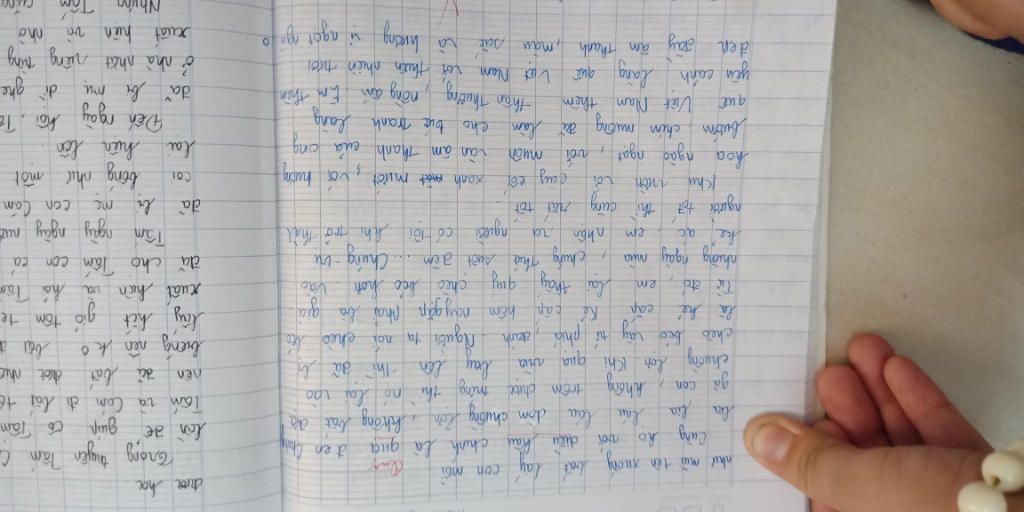 như mũi tên xuống bắt lấy con mồi
Cùng họ với diều hâu chính là quạ đen Chúng
lia lia láu láu dòm chuồng lợn, không bắt được
gà con, không trộm được trứng thì nó lại vào
chuồng lợn. Khi quạ vừa bay lên thì đã bị
chèo bẻo vây tứ phía, đánh. Người ta nói chèo bẻo
là kẻ cắp. Kẻ cắp hôm nay gặp phải bà già
Từ đó, em lại thấy quý chèo bẻo hơn. Vào
những ngày mùa, chúng thức suốt đêm... Chúng trị
kẻ ác. em nhận ra người có tội khi trở thành
người tốt thì cũng rất tốt
Khu vườn với cây cối xanh mướt, với hương
hoa ngào ngạt, với muôn vàn âm thanh của ong
bướm chim muông đã làm cho bức tranh làng
quê Việt Nam thêm thân thương, nồng ấm. Em thêm
yêu cảnh làng quê Việt Nam với thiên nhiên tươi
đẹp đầy âm thanh, màu sắc và hương vị ngọt
được
Trong truyện Tấm
lớn để giúp cô Tấm
Tấm và Cám đi bắt
nên đã bắt được
biếng nên k o bắt
lấy hết giỏ tôm
xuất hiện và hỏi Tấm
đã cho Tấm con cá
Tấm ngày ngày nuôi
đã bị mẹ con Cám
coi bống như một
lại hiện lên
Đến ngày hội, Tấm
đã bị mụ dì ghẻ
ở nhà nhặt riêng từng
xuất hiện và nhờ
Nhưng Tấm cũng